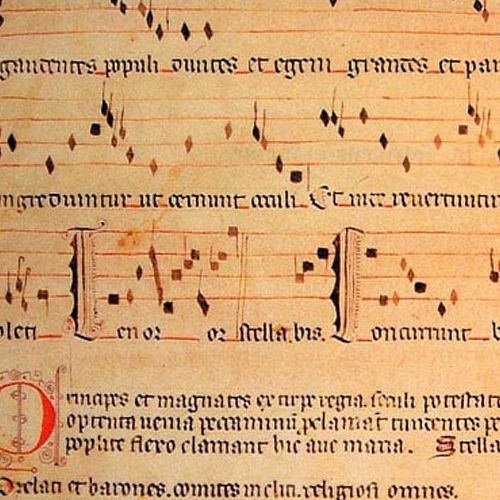 gaudentes populi diuites et egeni grandes et par
ingrediuntur ut cernunt occuli Et inde reuertuntur
pleti Tenor or stella.bis. Concurrunt
Principes et magnates ex tirpe regia. seculi potestat
optenta uenia peccaminū pclamāt tundentes pe
poplite flexo clamant hic aue maria. Stella
Prelati et barones.comites incliti.religiosi omnes.